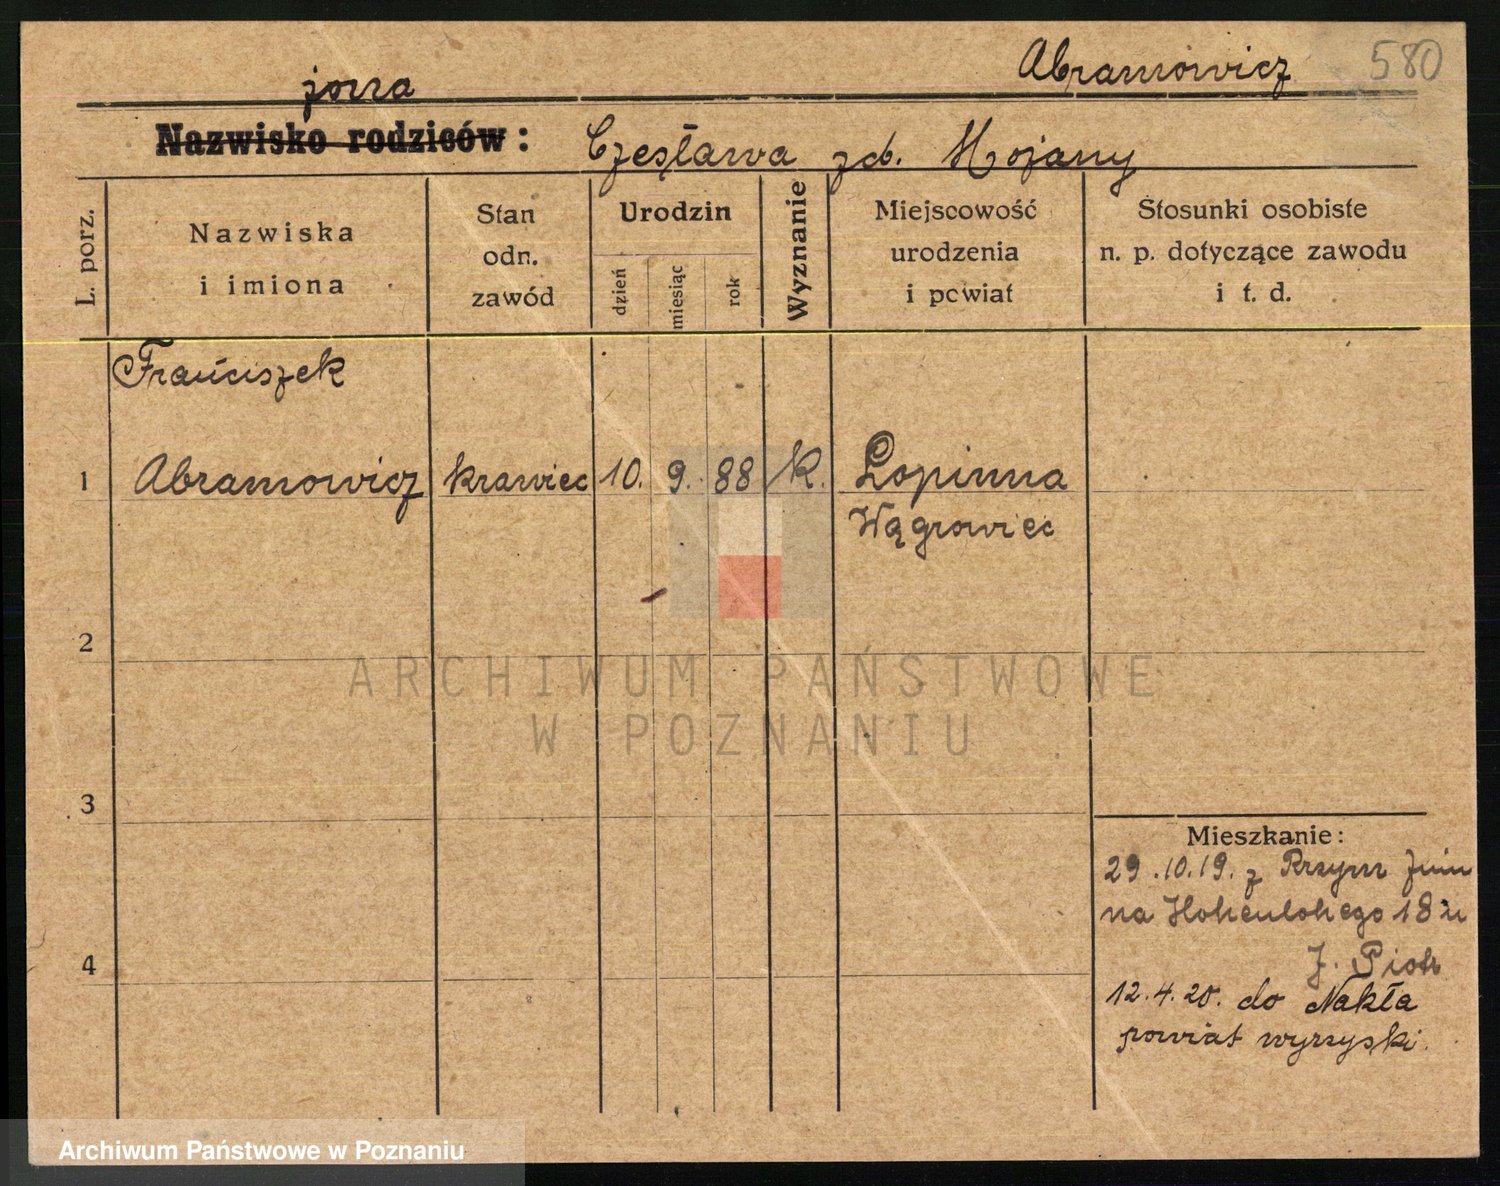 Abramowicz 580
żona
Nazwisko rodziców:
Czesława zd. Hojany
L. porz.
Nazwiska
i imiona
Stan
odn.
zawód
Urodzin
dzień
miesiąc
rok
Wyznanie
Miejscowość
urodzenia
i powiat
Stosunki osobiste
n. p. dotyczące zawodu
i t. d.
Franciszek
1 Abramowicz krawiec 10. 9. 88 K. Łopinna
Wągrowiec
2
3
4
Mieszkanie:
29.10.19. z
na Hohenlohego 18 u
J. Piotr
12.4.20. do Nakła
powiat wyrzyski.
ARCHIWUM PAŃSTWOWE
W POZNANIU
Archiwum Państwowe w Poznaniu